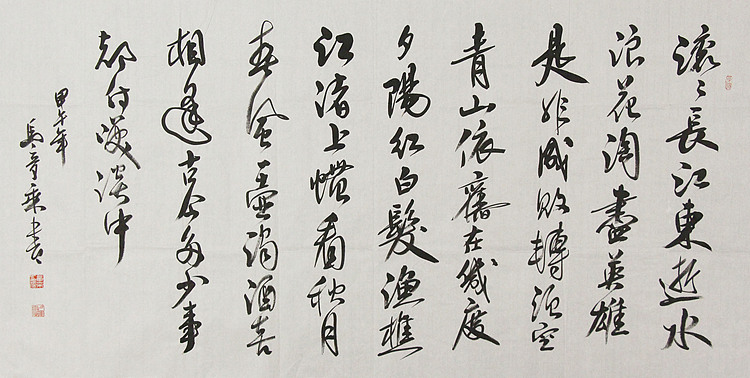 滚々長江東逝水
浪花淘盡英雄
是非成敗轉頭空
青山依舊在幾度
夕陽红白髮漁樵
江渚上慣看秋月
春風一壺濁酒喜
相逢古今多少事
都付笑談中
甲午年
馬晋乘書